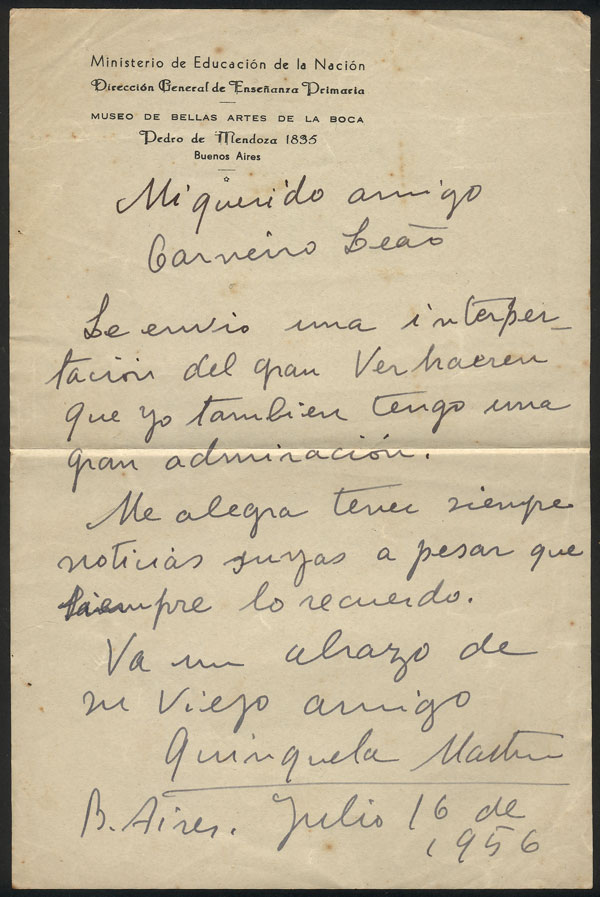 Ministerio de Educación de la Nación
Dirección General de Enseñanza Primaria
MUSEO DE BELLAS ARTES DE LA BOCA
Pedro de Mendoza 1835
Buenos Aires
Mi querido amigo
Carneiro Leão
Le envio una interper-
tación del gran Verhaeren
que yo tambien tengo una
gran admiración.
Me alegra tener siempre
noticias suyas a pesar que
siempre lo recuerdo.
Va un abrazo de
su viejo amigo
Quinquela Martin
B. Aires. Julio 16 de
1956